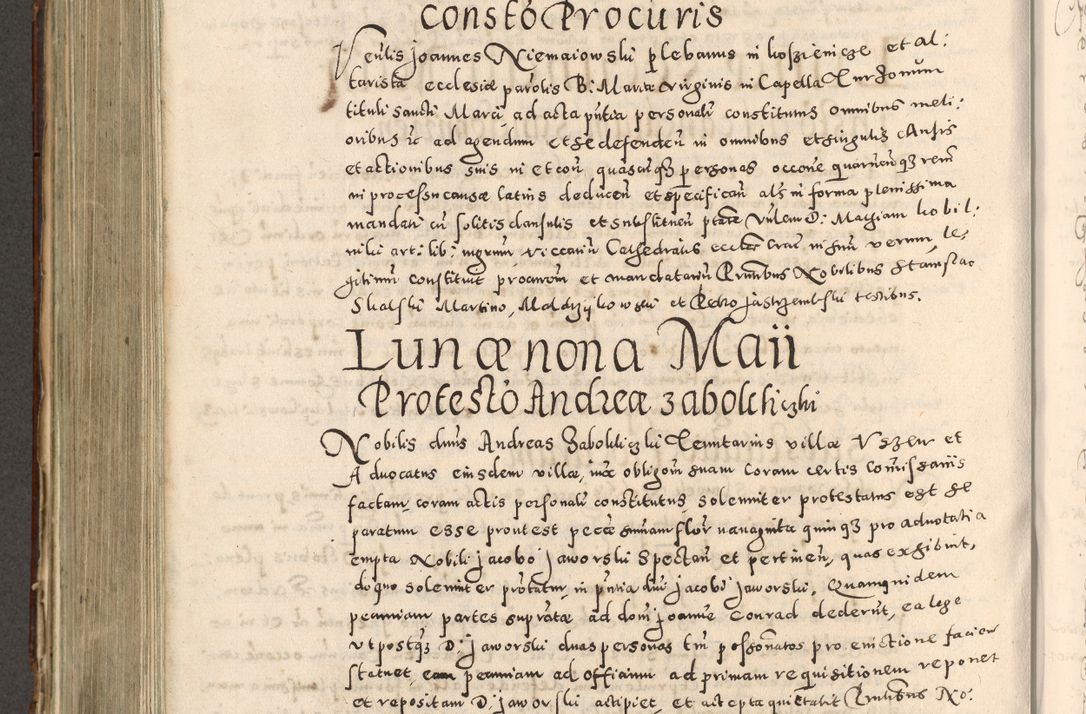 Constõ Procuris
Venlis Joannes Niemaiowski plebanus in koszienicze et al:
tarista ecclesiæ parolis B: Mariæ virginis in Capella
tituli Sancti Marci, ad acta pñtia personalr constitutus omnibus meli:
oribus ꝛc ad agendum et se defendeñ in omnibus et singulis causis
et actionibus suis in et coñ quascunq3 personas occone quarumcunq3 rerũ
in processu causæ latius deduceñ et specificañ als in forma plenissima
mandati cũ solitis clausulis et substituen ptate Vñlem D: Mathiam kobil:
niki art: lib: mgrum, viccariũ Cathedralis eccliæ Crac in suũ verum, le:
gitimũ constituit procurem et mandatariũ Prntibus Nobilibus Stanislao
Skalski Martino, et Petro Jastrzembski testibus.
Lunæ nona Maii
Protestõ Andreæ zabokliczki
Nobilis dnus Andreas Zabokliczki Tenutarius villæ Uszew et
Advocatus eiusdem villæ, iuxa obligoñ suam coram certis comissariis
factam, coram actis personalr constitutus solenniter protestatus est se
paratum esse prout est pecæ sumam flor quinq3 pro advocatia
empta Nobili Jacobo Jaworski spectañ et pertineñ, quas exhibuit,
do quo solenniter protatur, in pñtia dni Jacobi Jaworski. Quam quidem
pecuniam partes supratæ ad dom Joannis Conrad dederũt, ea lege
ut postq3 D: Jaworski duas personas tm possonatos pro evictione facien
statuet, eam pecuniam ad officium ad primam requisitionem reponet
et repositam D: Jaworski accipiet, et accepta quietabit Prntibus No: